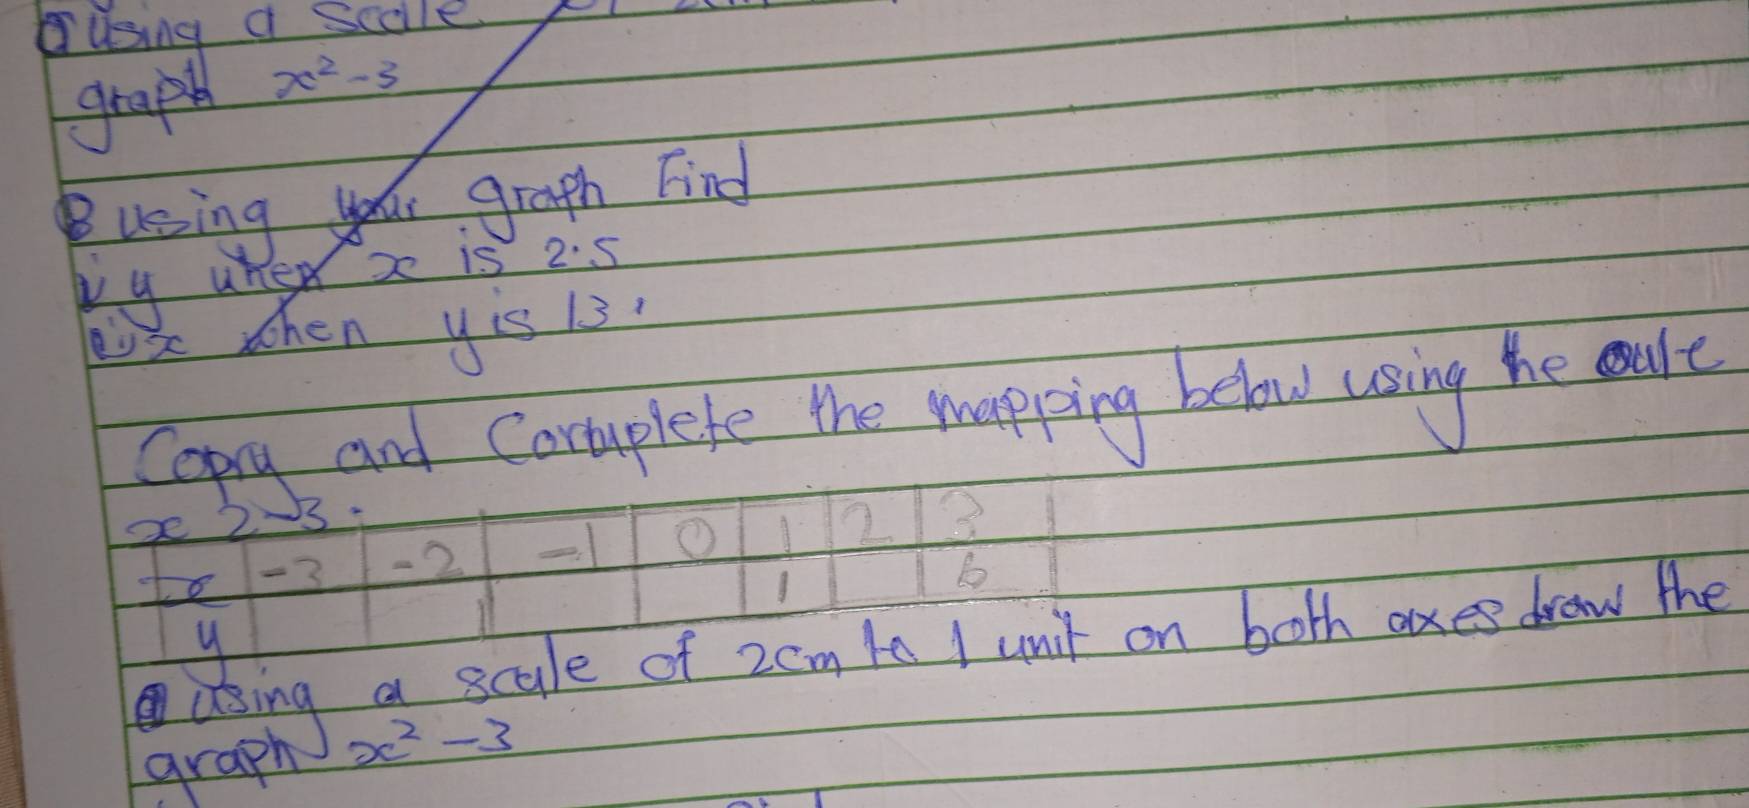 using a scale
graph x² - 3
B using your graph Find
i, y when x is 2.5
ii, x when y is 13.
Copy and Complete the mapping below using the
x 2-3.
x -3 -2 -1 0 1 2 3
y 1 6
using a scale of 2cm to 1 unit on both axes draw the
graph x² - 3